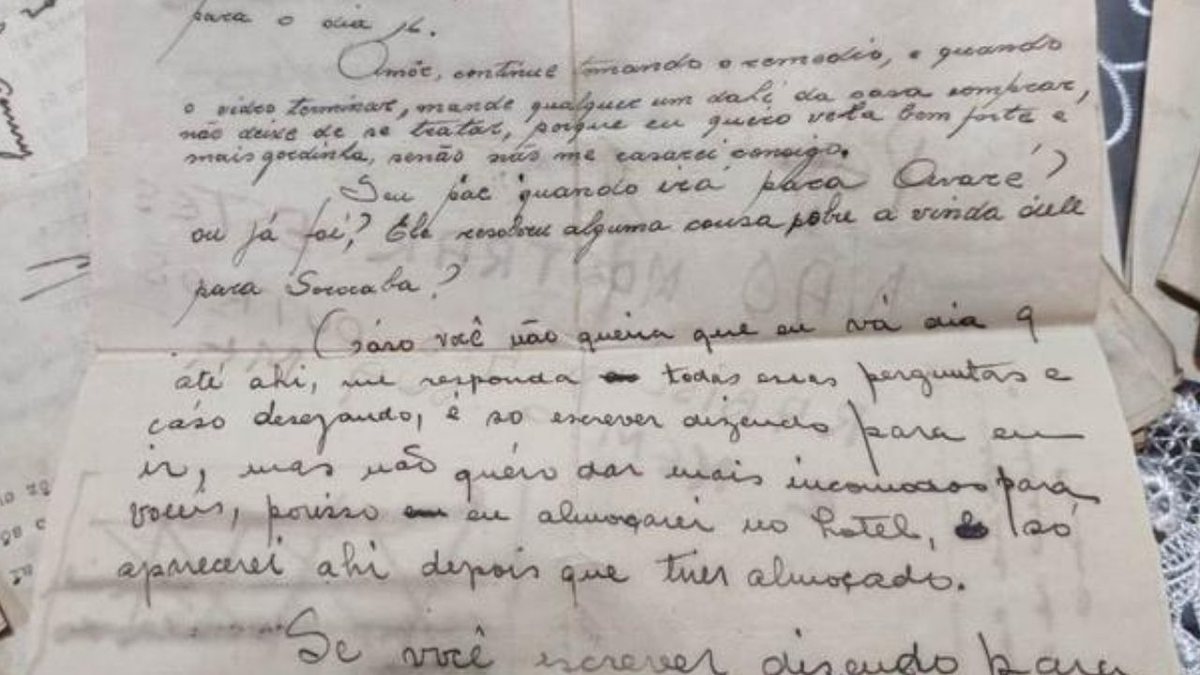 para o dia 16.
Amôr, continue tomando o remedio, e quando
o vidro terminar, mande qualquer um dahi da casa comprar,
não deixe de se tratar, porque eu quero vela bem forte e
mais gordinha, senão não me casarei consigo.
Seu pae quando irá para Avaré?
ou já foi? Ele resolveu alguma cousa sobre a vinda dele
para Sorocaba?
Cáso você não queira que eu vá dia 9
até ahi, me responda todas essas perguntas e
cáso desejando, é so escrever dizendo para eu
ir, mas não quéro dar mais incomodos para
vocês, porisso eu almoçarei no hotel, só
aparecerei ahi depois que tiver almoçado.
Se você escrever dizendo para